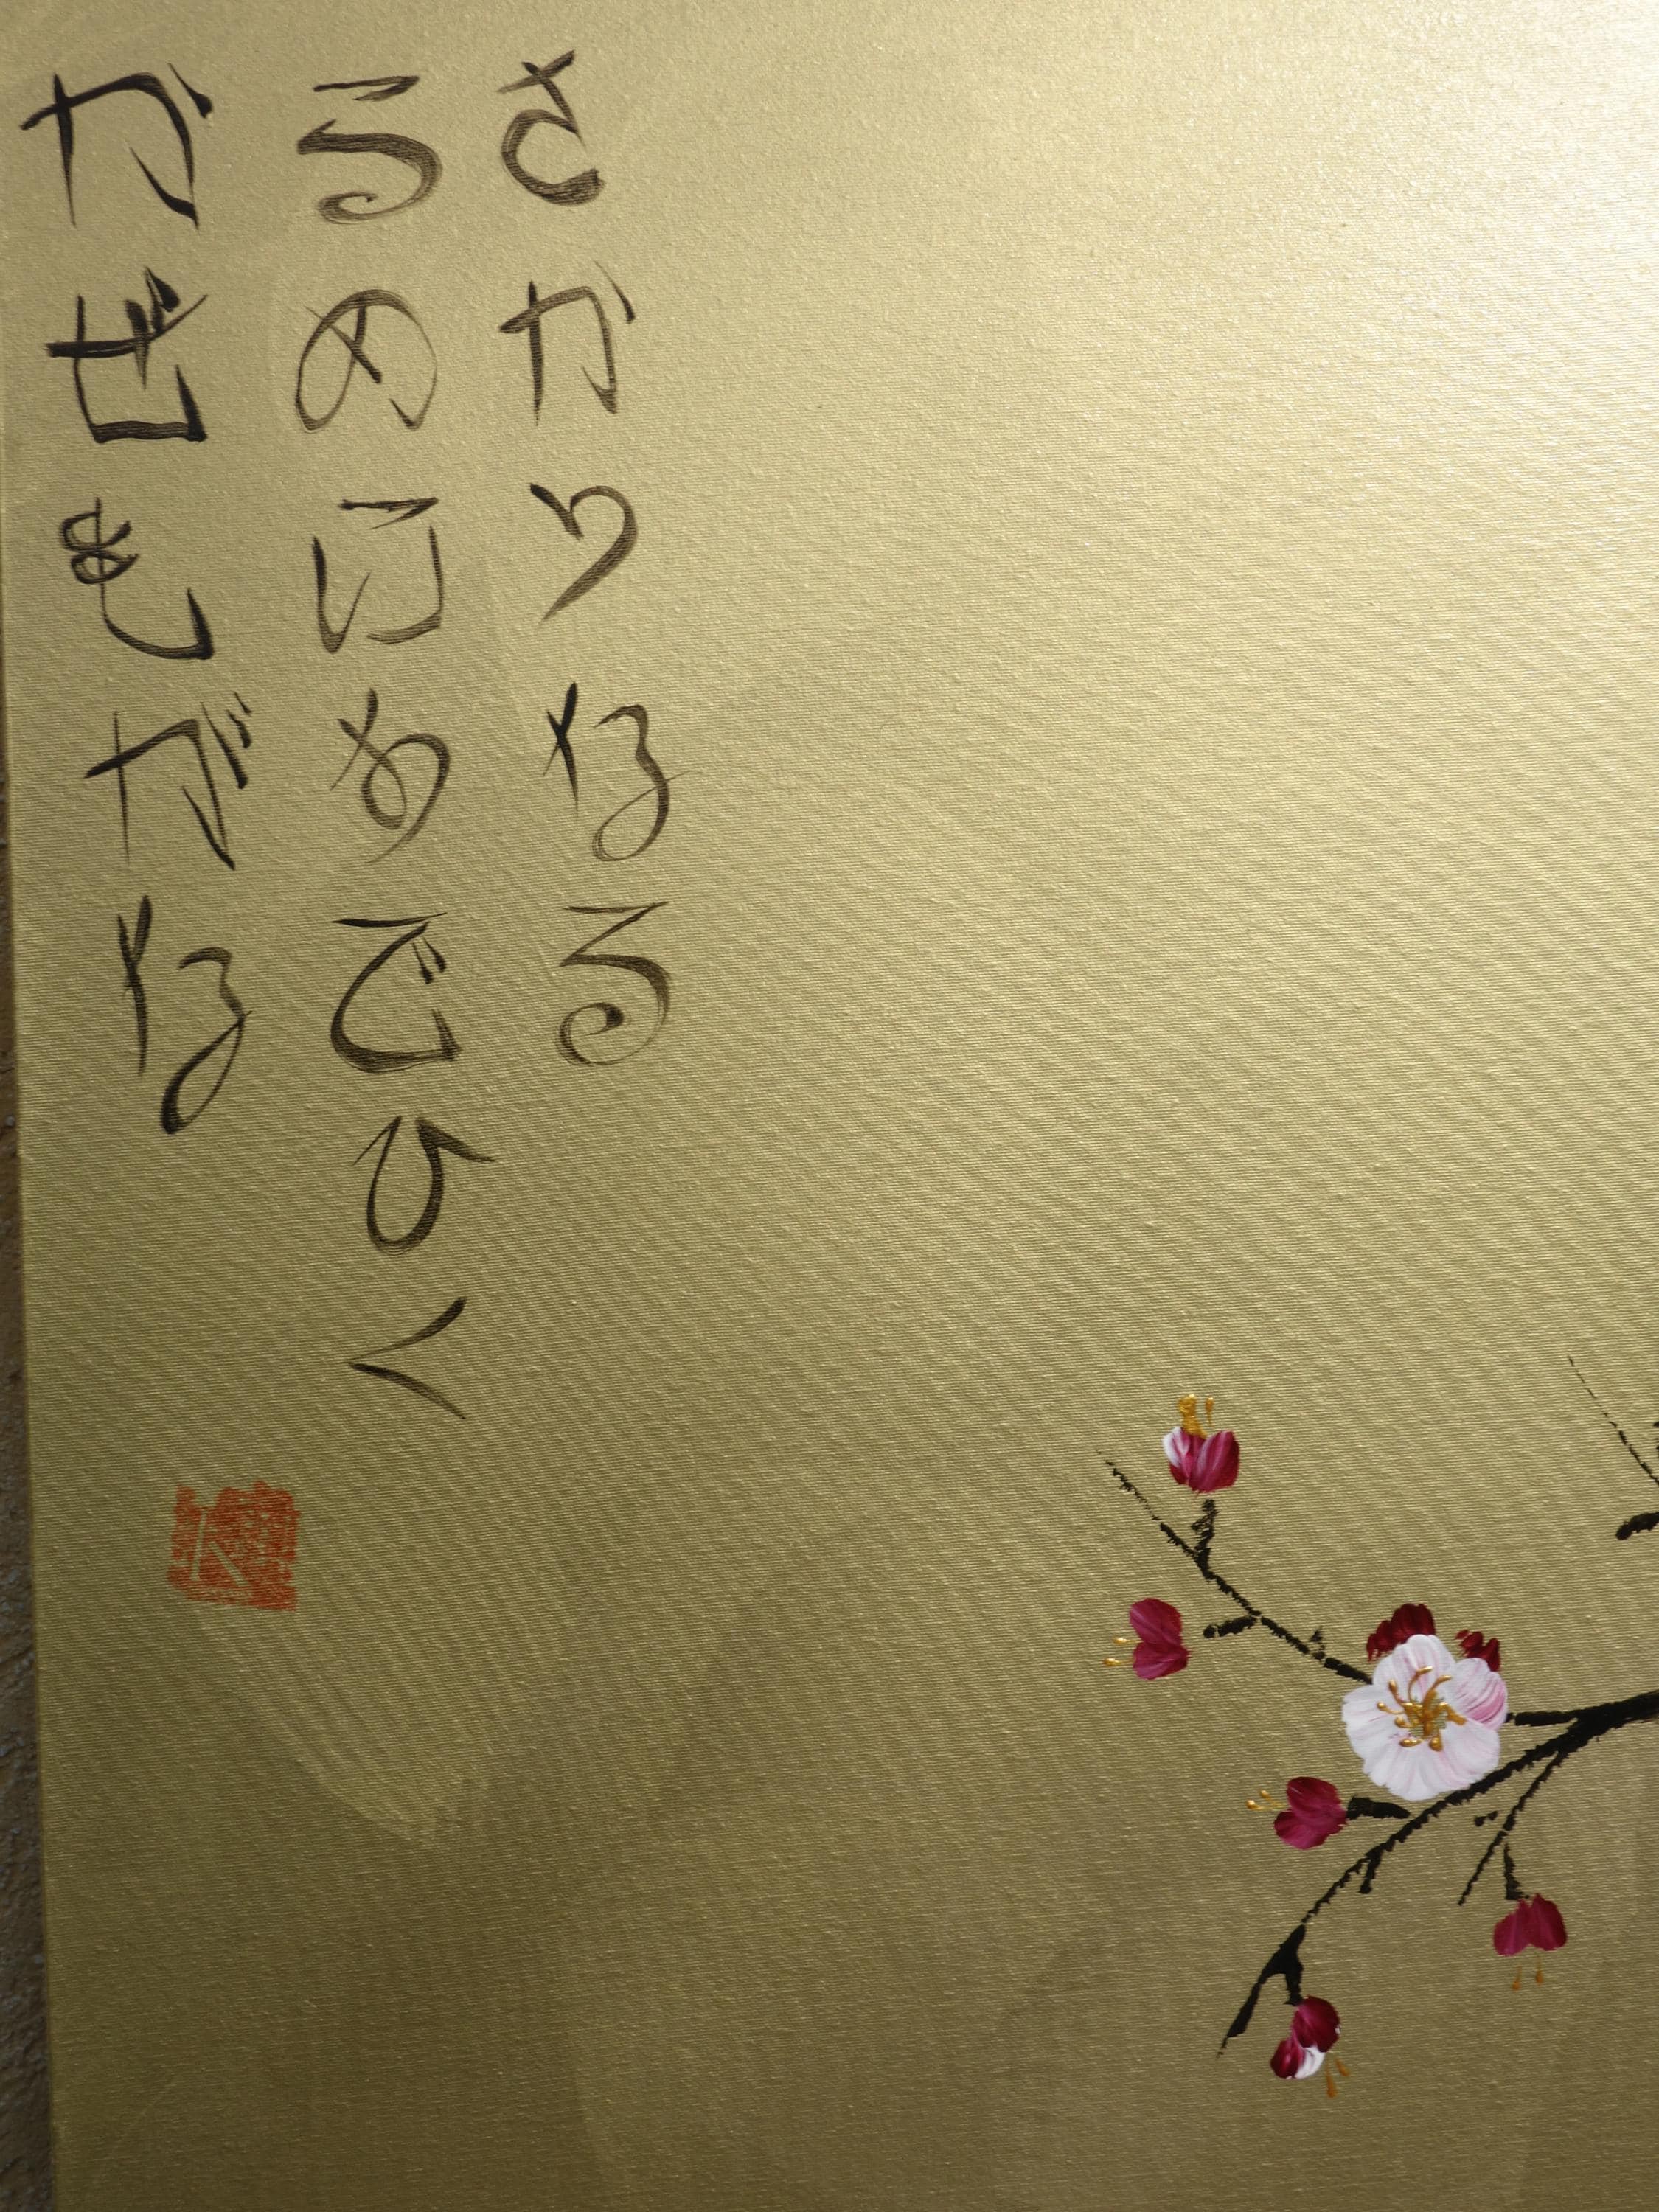 さかりなる
うめにすでひく
かぜもがな
K